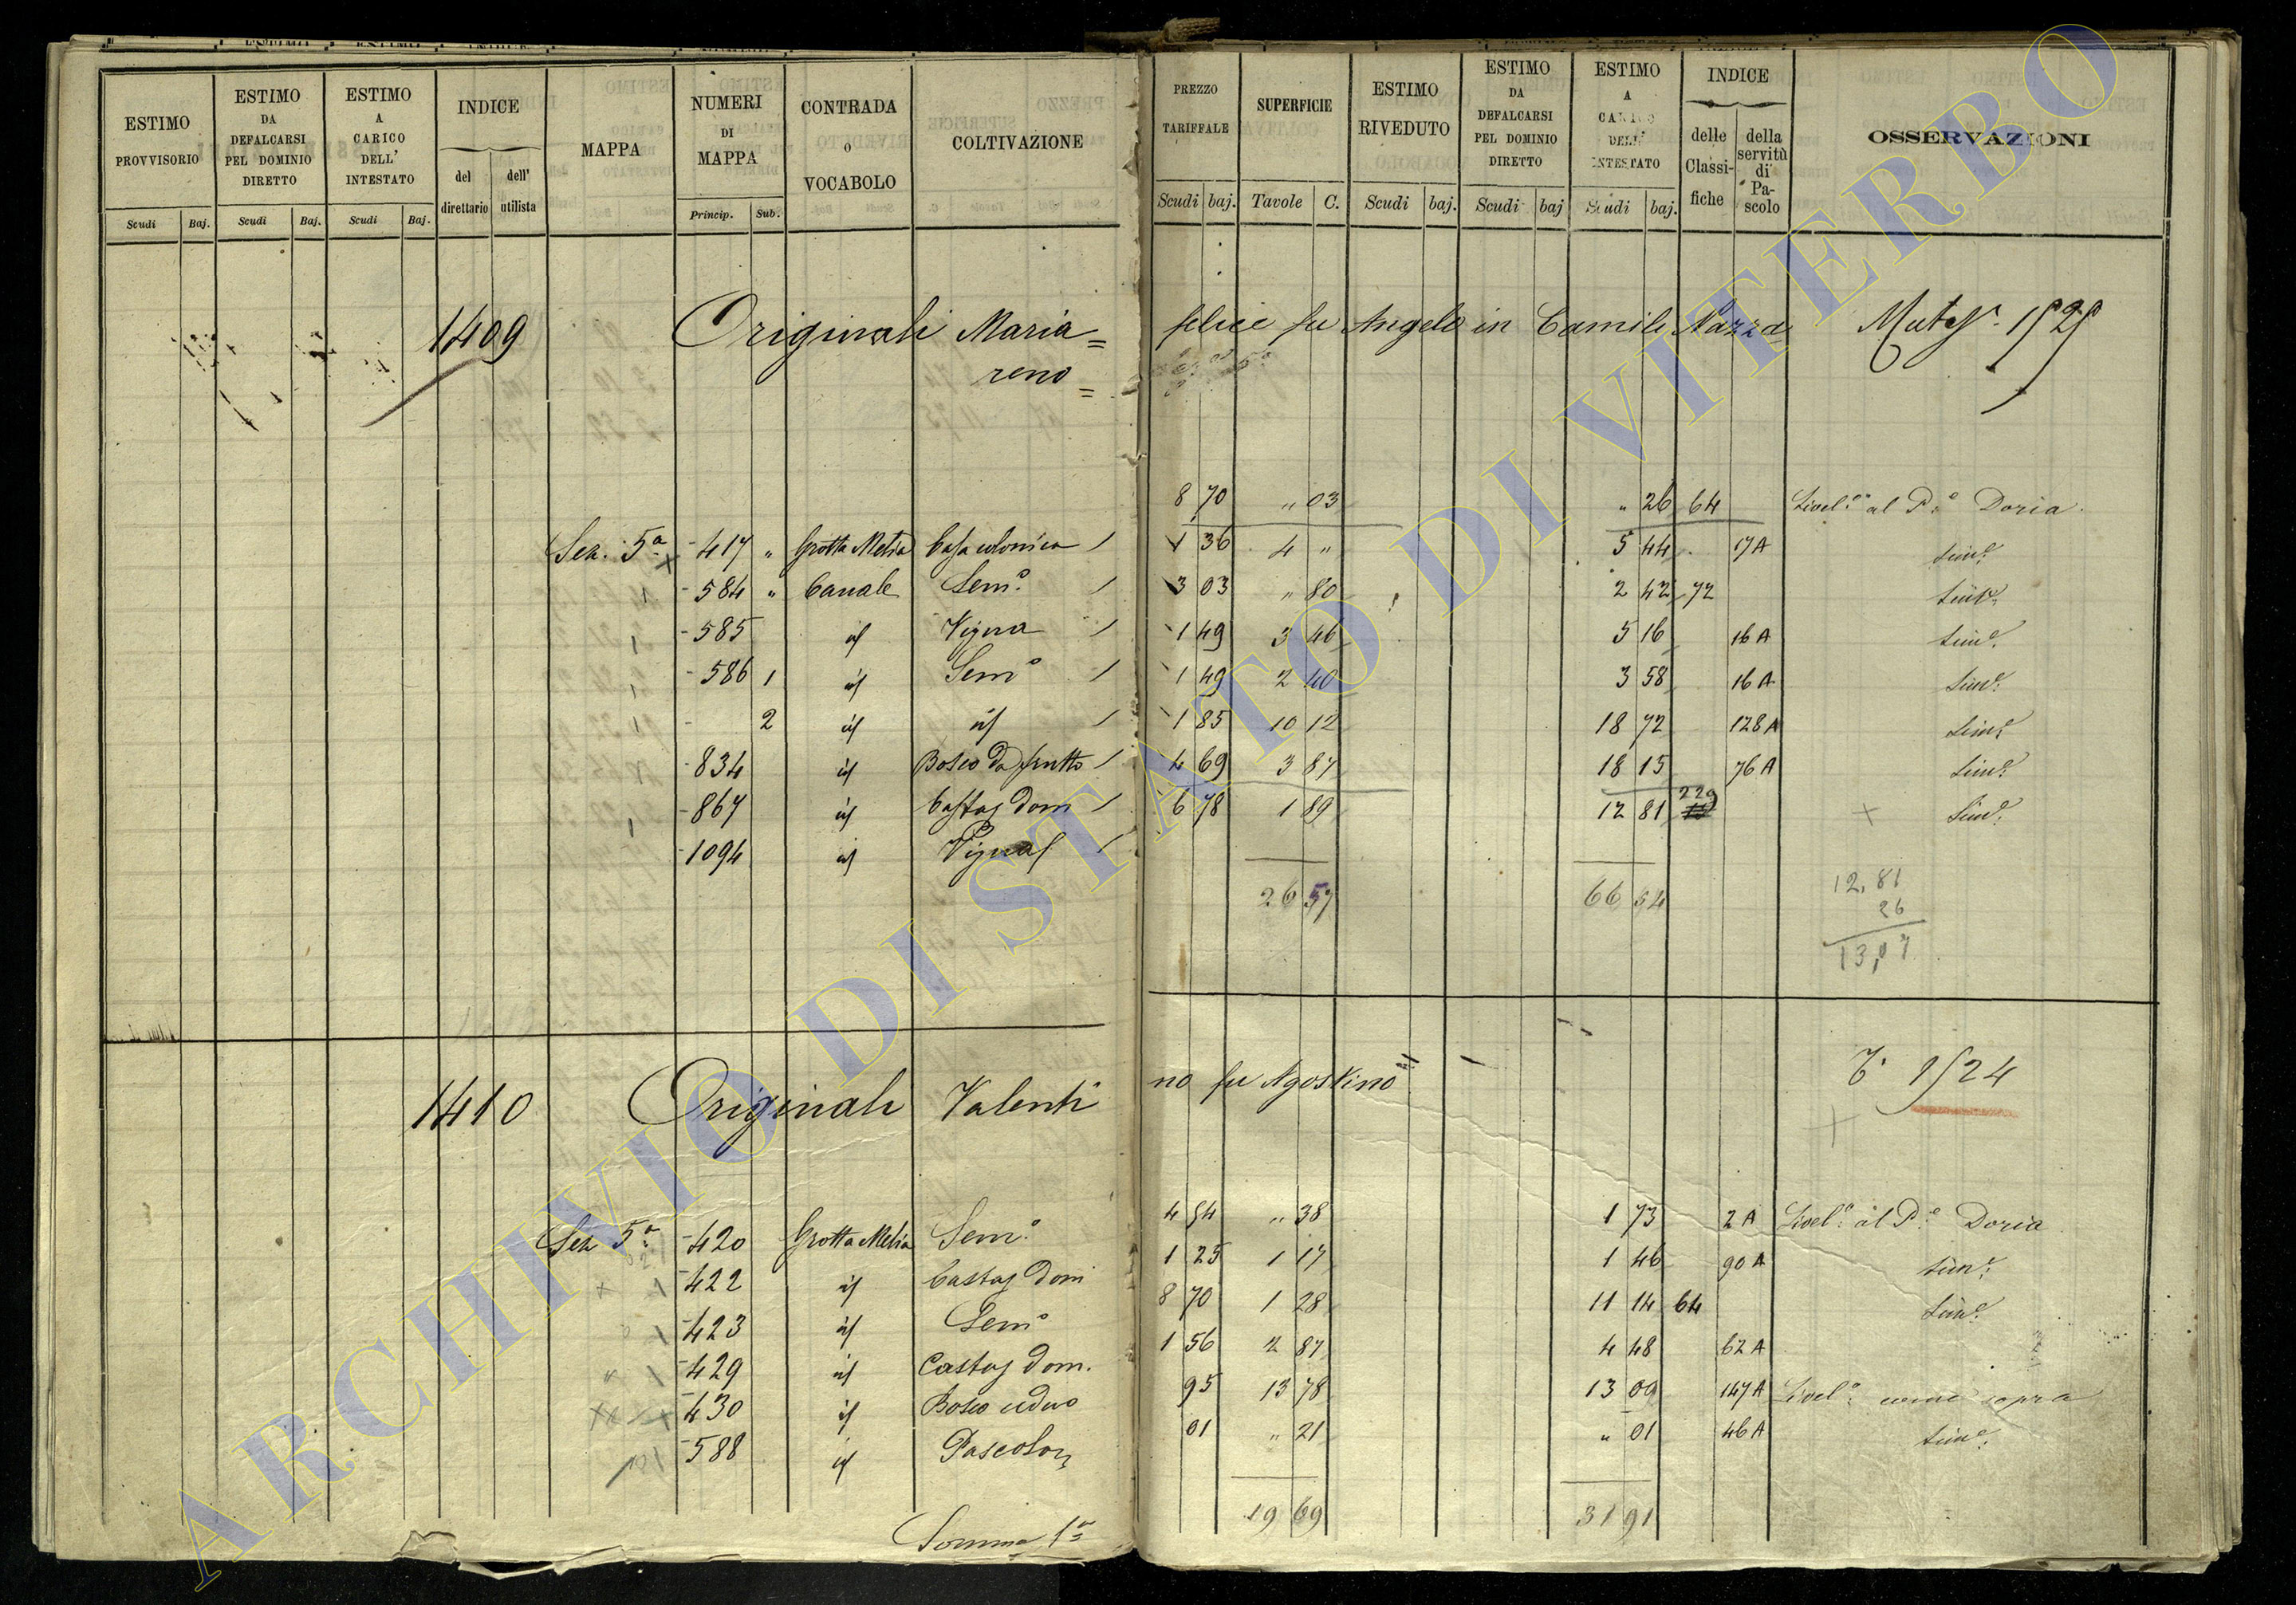 ESTIMO PROVVISORIO Scudi Baj.
ESTIMO DA DEFALCARSI PEL DOMINIO DIRETTO Scudi Baj.
ESTIMO A CARICO DELL' INTESTATO Scudi Baj.
INDICE del direttario dell' utilista
MAPPA
NUMERI DI MAPPA Princip. Sub.
CONTRADA O VOCABOLO
COLTIVAZIONE
PREZZO TARIFFALE Scudi baj.
SUPERFICIE Tavole C.
ESTIMO RIVEDUTO Scudi baj.
ESTIMO DA DEFALCARSI PEL DOMINIO DIRETTO Scudi baj
ESTIMO A CARICO DELL' INTESTATO Scudi baj.
INDICE delle Classifiche della servitù di Pascolo
OSSERVAZIONI
1409 Originali Maria= felice fu Angelo in Camilli Nazza
reno=
Sez. 5a 417 " Grotta Melia Casa colonica 8 70 " 03 " 26 64 Livel.o al P.e Doria
584 " Canale Sem.o 1 36 4 " 5 44 17A Sim.e
585 id Vigna 3 03 " 80 2 42 72 Sim.e
586 1 id Sem.o 1 49 3 46 5 16 16A Sim.e
2 id id 1 49 2 40 3 58 16A Sim.e
834 id Bosco da frutto 1 85 10 12 18 72 128A Sim.e
867 id Castag Dom 4 69 3 87 18 15 76A Sim.e
1094 id Vigna 6 78 1 89 12 81 229 Sim.e
26 57 66 54
12,81
26
13,07
1410 Originali Valenti no fu Agostino 1524
Sez 5a 420 Grotta Melia Sem.o 4 54 " 38 1 73 2A Livel.o al P.e Doria
422 id Castag Dom 1 25 1 17 1 46 90A Sim.e
423 id Sem.o 8 70 1 28 11 14 64 Sim.e
429 id Castag Dom. 1 56 2 87 4 48 62A
430 id Bosco ceduo 95 13 78 13 09 147A Livel.o come sopra
588 id Pascolo 01 " 21 " 01 46A Sim.e
Somma 1a 19 69 31 91
ARCHIVIO DI STATO DI VITERBO